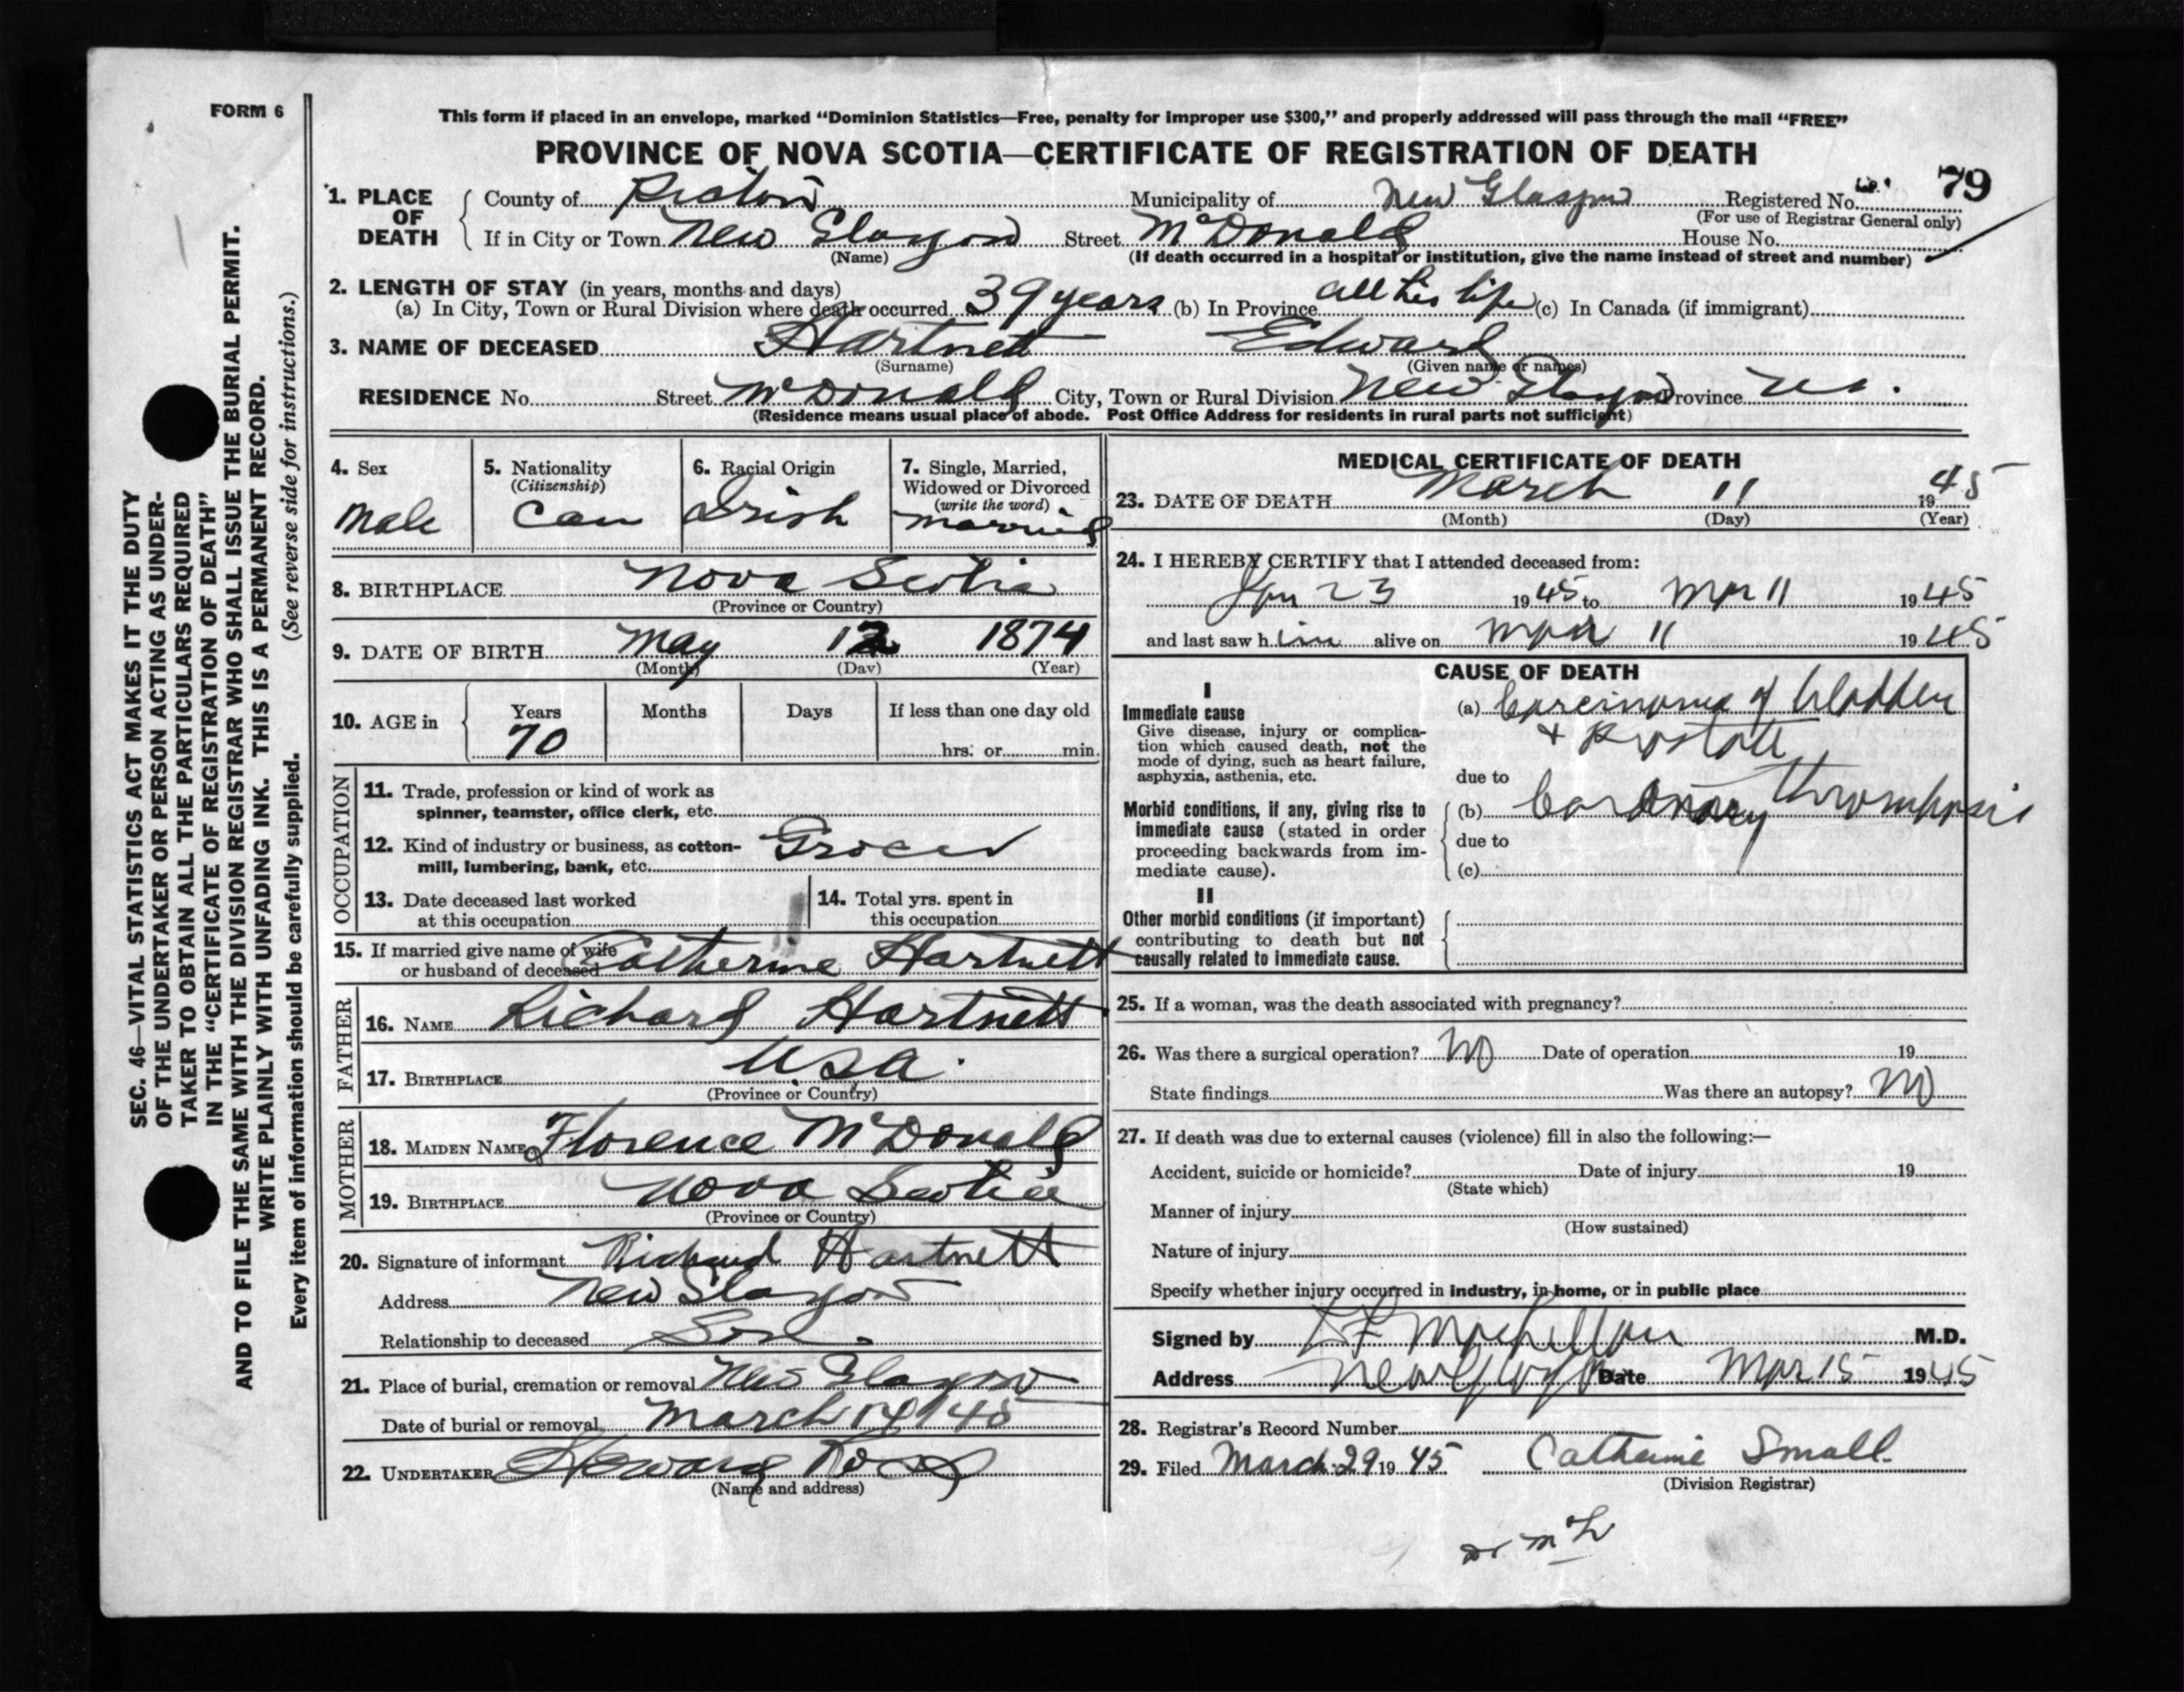 FORM 6
This form if placed in an envelope, marked “Dominion Statistics—Free, penalty for improper use $300,” and properly addressed will pass through the mail “FREE”
PROVINCE OF NOVA SCOTIA—CERTIFICATE OF REGISTRATION OF DEATH
79
1. PLACE OF DEATH County of Pictou Municipality of New Glasgow Registered No.
(For use of Registrar General only)
If in City or Town New Glasgow Street McDonald House No.
(Name) (If death occurred in a hospital or institution, give the name instead of street and number)
2. LENGTH OF STAY (in years, months and days)
(a) In City, Town or Rural Division where death occurred 39 years (b) In Province all his life (c) In Canada (if immigrant)
3. NAME OF DECEASED Hartnett Edward
(Surname) (Given name or names)
RESIDENCE No. Street McDonald City, Town or Rural Division New Glasgow Province N.S.
(Residence means usual place of abode. Post Office Address for residents in rural parts not sufficient)
4. Sex
Male
5. Nationality
(Citizenship)
Can
6. Racial Origin
Irish
7. Single, Married,
Widowed or Divorced
(write the word)
married
8. BIRTHPLACE Nova Scotia
(Province or Country)
9. DATE OF BIRTH May 12 1874
(Month) (Day) (Year)
10. AGE in Years Months Days If less than one day old
70 hrs. or min.
OCCUPATION
11. Trade, profession or kind of work as
spinner, teamster, office clerk, etc.
12. Kind of industry or business, as cotton-
mill, lumbering, bank, etc. Grocer
13. Date deceased last worked
at this occupation
14. Total yrs. spent in
this occupation
15. If married give name of wife
or husband of deceased Catherine Hartnett
FATHER
16. NAME Richard Hartnett
17. BIRTHPLACE USA.
(Province or Country)
MOTHER
18. MAIDEN NAME Florence McDonald
19. BIRTHPLACE Nova Scotia
(Province or Country)
20. Signature of informant Richard Hartnett
Address New Glasgow
Relationship to deceased Son.
21. Place of burial, cremation or removal New Glasgow
Date of burial or removal March 14/45
22. UNDERTAKER Howard Ross
(Name and address)
MEDICAL CERTIFICATE OF DEATH
23. DATE OF DEATH March 11 1945
(Month) (Day) (Year)
24. I HEREBY CERTIFY that I attended deceased from:
Jan 23 1945 to Mar 11 1945
and last saw him alive on Mar 11 1945
CAUSE OF DEATH
I
Immediate cause
Give disease, injury or complica-
tion which caused death, not the
mode of dying, such as heart failure,
asphyxia, asthenia, etc.
(a) Carcinoma of bladder
+ Prostate
due to
Morbid conditions, if any, giving rise to
immediate cause (stated in order
proceeding backwards from im-
mediate cause).
(b) Coronary Thrombosis
due to
(c)
II
Other morbid conditions (if important)
contributing to death but not
causally related to immediate cause.
25. If a woman, was the death associated with pregnancy?
26. Was there a surgical operation? No Date of operation 19
State findings Was there an autopsy? No
27. If death was due to external causes (violence) fill in also the following:—
Accident, suicide or homicide? Date of injury 19
(State which)
Manner of injury
(How sustained)
Nature of injury
Specify whether injury occurred in industry, in home, or in public place
Signed by M.D.
Address New Glasgow Date Mar 15 1945
28. Registrar's Record Number
29. Filed March 29 1945 Catherine Small.
(Division Registrar)
Dr McL
SEC. 46—VITAL STATISTICS ACT MAKES IT THE DUTY
OF THE UNDERTAKER OR PERSON ACTING AS UNDER-
TAKER TO OBTAIN ALL THE PARTICULARS REQUIRED
IN THE “CERTIFICATE OF REGISTRATION OF DEATH”
AND TO FILE THE SAME WITH THE DIVISION REGISTRAR WHO SHALL ISSUE THE BURIAL PERMIT.
WRITE PLAINLY WITH UNFADING INK. THIS IS A PERMANENT RECORD.
Every item of information should be carefully supplied. (See reverse side for instructions.)